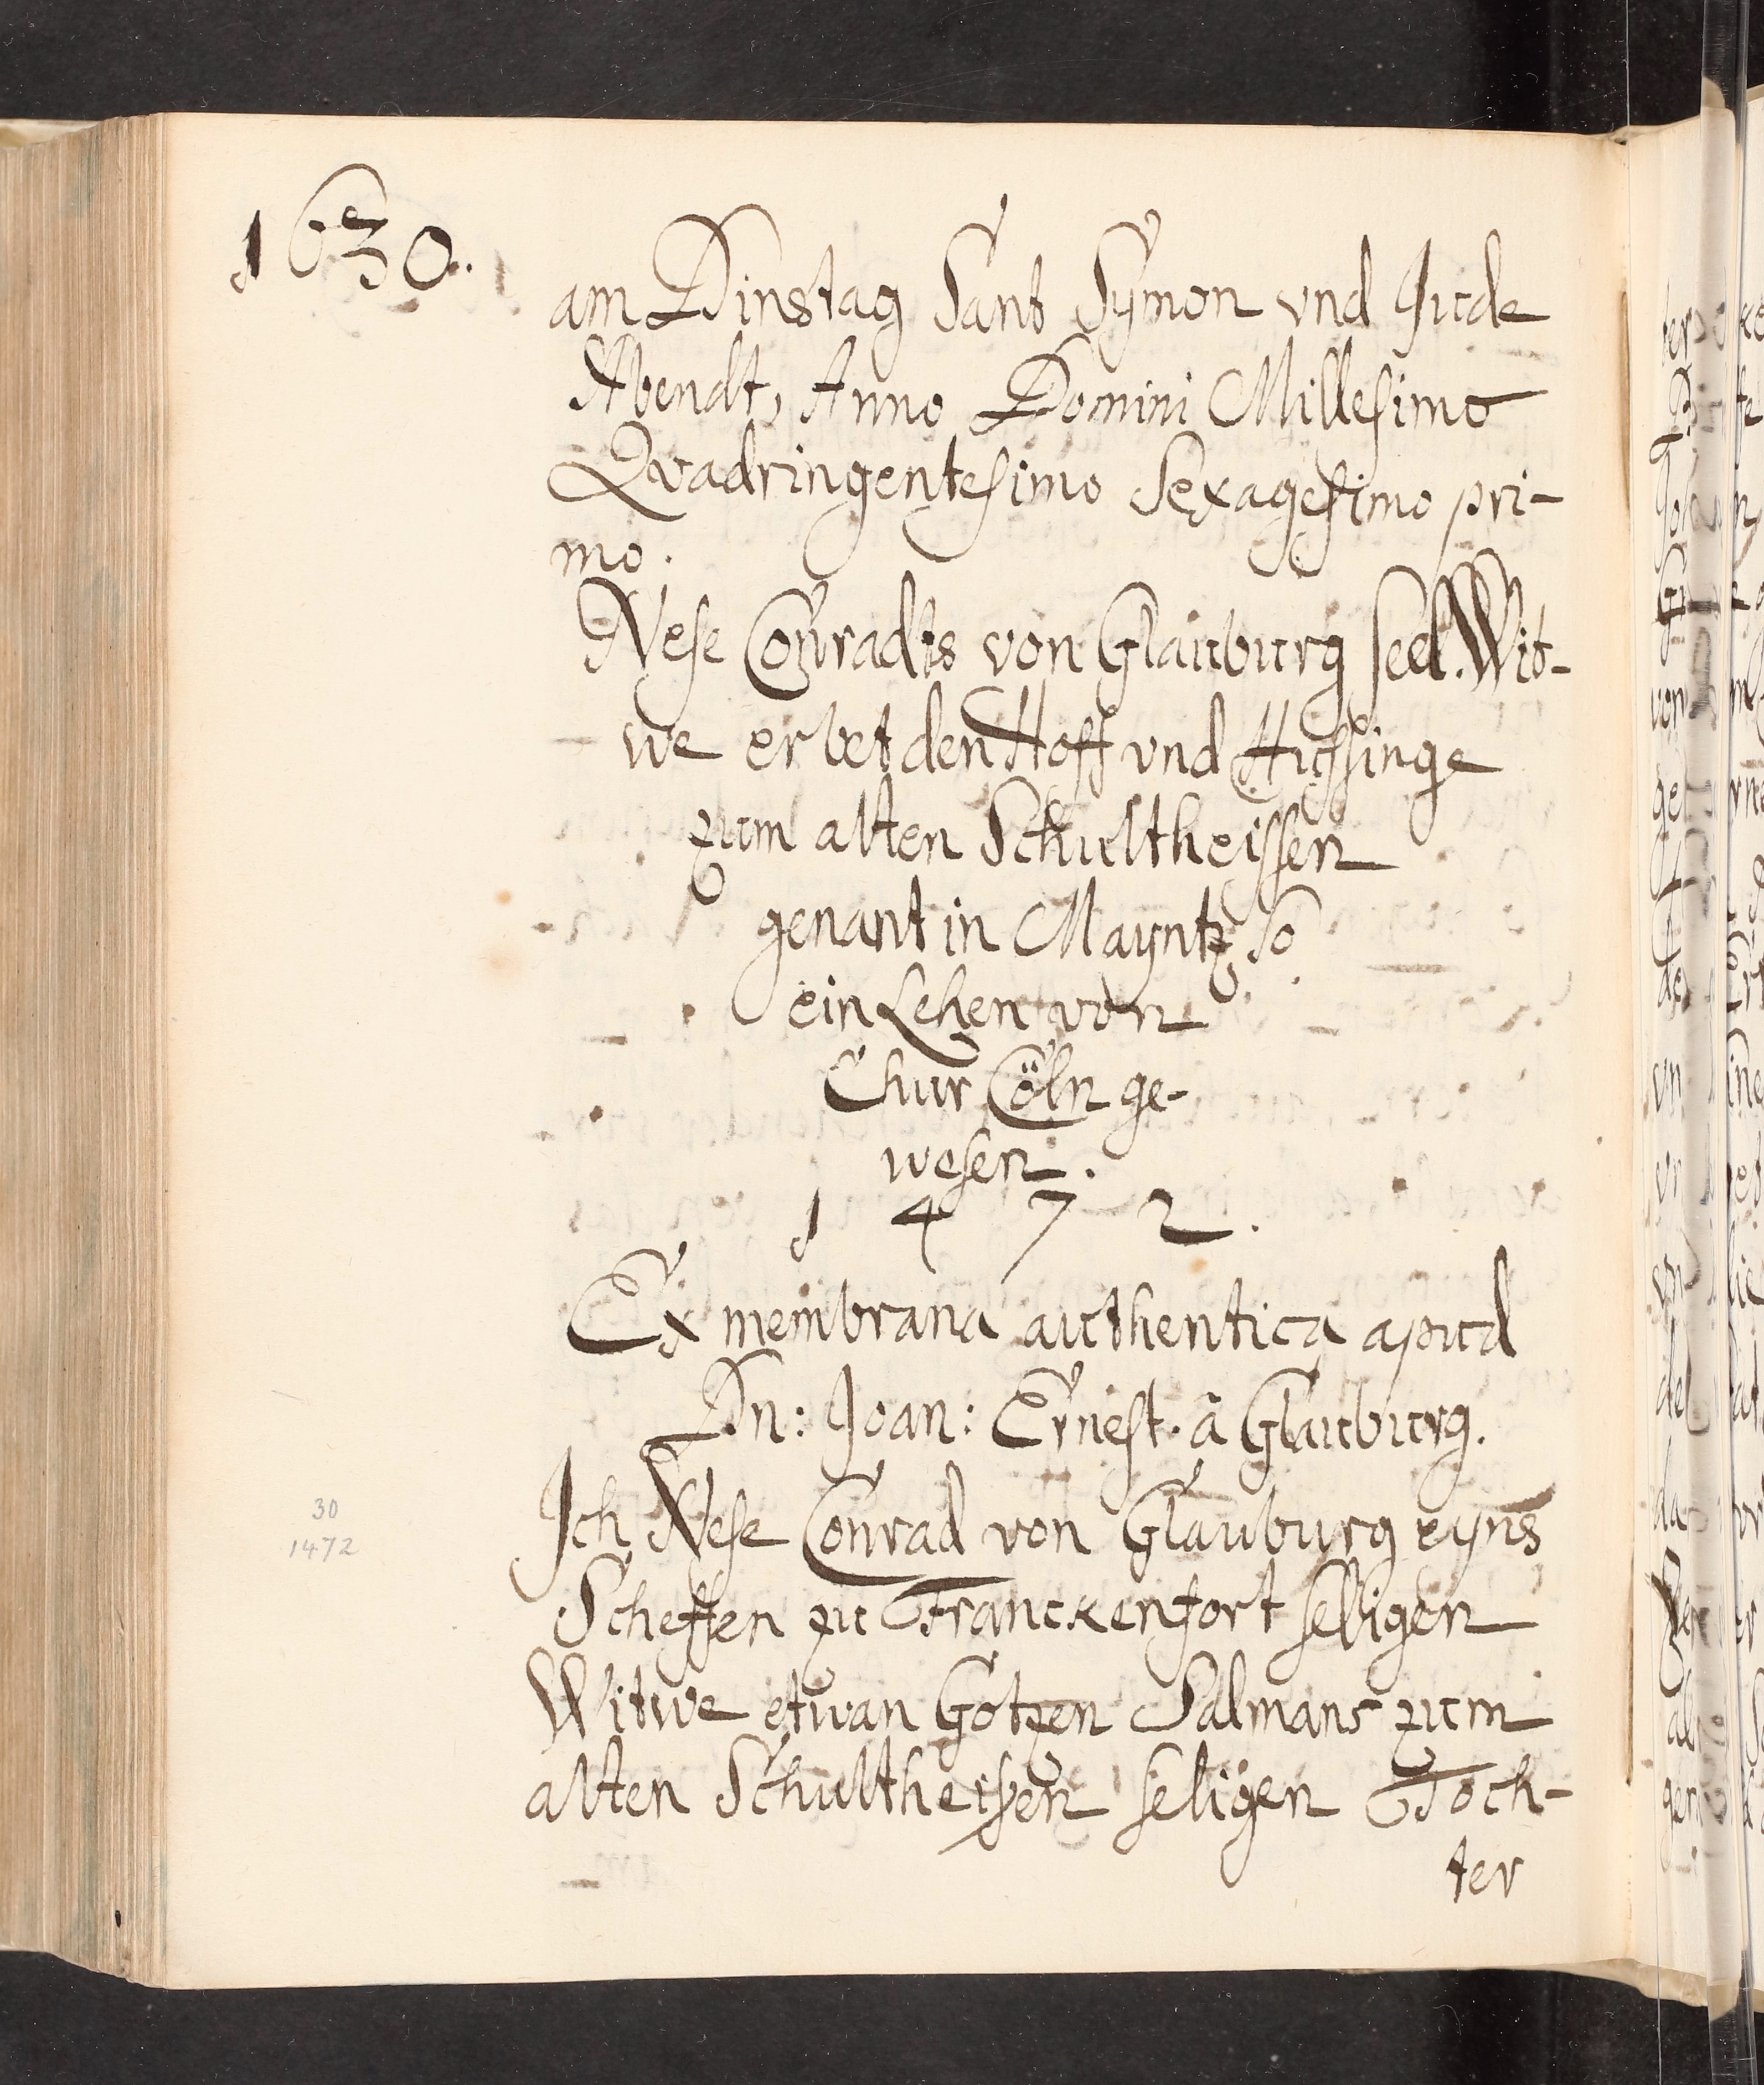 1630.
am Dinstag Sant Symon vnd Jude
Abendt, Anno Domini Millesimo
Quadringentesimo Sexagesimo pri-
mo.
Nese Conradts von Glauburg seel. Wit-
we erbet den Hoff vnd Hussinge
zum alten Schultheissen
genant in Mayntz so
ein Lehen von
Chur Cöln ge-
wesen.
1472.
Ex membrana authentica apud
Dn: Joan: Ernest. â Glauburg.
Ich Nese Conrad von Glauburg eyns
Scheffen zu Franckenfort selligen
Witwe etwan Gotzen Salmans zum
alten Schultheisen seligen Toch-
ter
30
1472